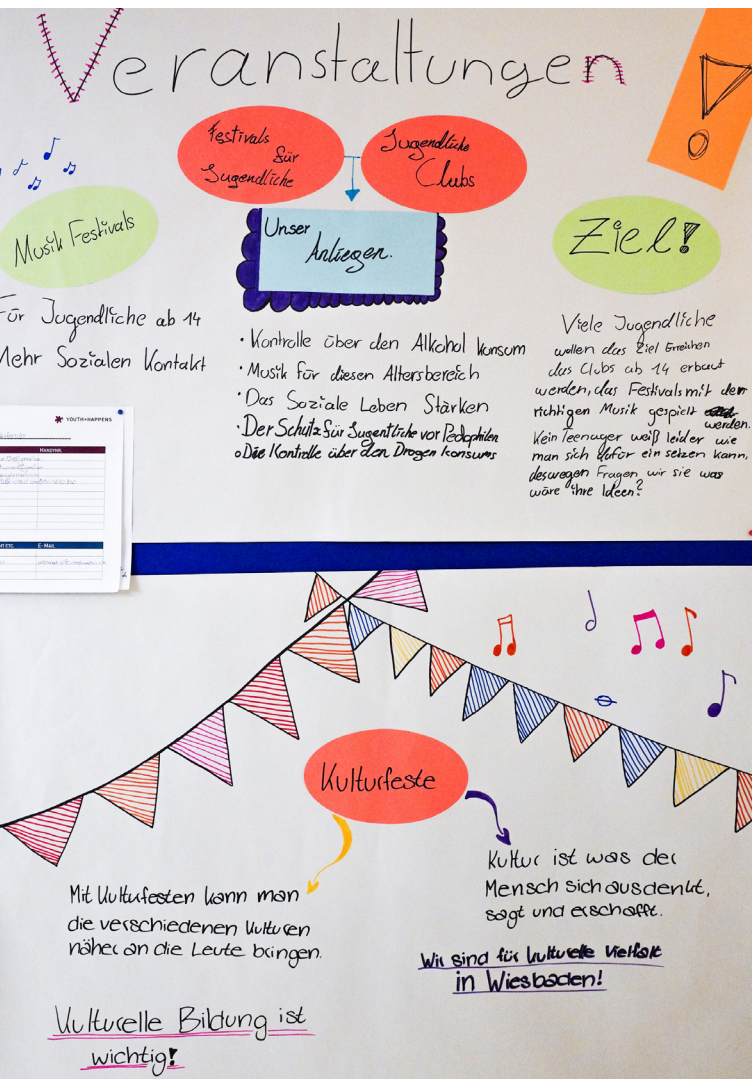 Veranstaltungen
Festivals
für
Jugendliche
Jugendliche
Clubs
Musik Festivals
Für Jugendliche ab 14
Mehr Sozialen Kontakt
Unser
Anliegen.
• Kontrolle über den Alkohol konsum
• Musik für diesen Altersbereich
• Das Soziale Leben Stärken
• Der Schutz für Jugentliche vor Pedophilen
• Die Kontrolle über den Drogen konsums
Ziel!
Viele Jugendliche
wollen das Ziel Erreichen
das Clubs ab 14 erbaut
werden, das Festivals mit der
richtigen Musik gespielt
werden.
Kein Teenager weiß leider wie
man sich dafür ein setzen kann,
deswegen Fragen wir sie was
wäre ihre Ideen?
YOUTH HAPPENS
HANDYNR.
E-MAIL
Kulturfeste
Mit Kulturfesten kann man
die verschiedenen Kulturen
näher an die Leute bringen.
Kulturelle Bildung ist
wichtig!
Kultur ist was der
Mensch sich ausdenkt,
sagt und erschafft.
Wir sind für kulturelle Vielfalt
in Wiesbaden!